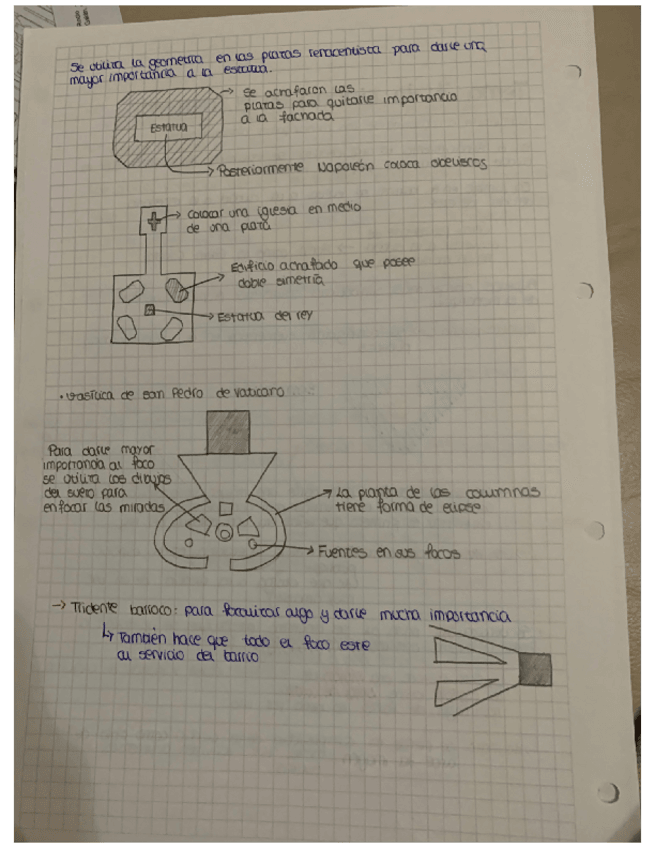 Se utiliza la geometría en las plazas renacentista para darle una
mayor importancia a la escultura.
Se acrafaron las
plazas para quitarle importancia
a la fachada
Estatua
Posteriormente Napoleón coloca obeliscos
Colocar una iglesia en medio
de una plaza
Edificio acrafado que posee
doble simetría
Estatua del rey
· Basílica de San Pedro de Vaticano
Para darle mayor
importancia al foco
se utiliza los dibujos
del suelo para
enfocar las miradas
La planta de las columnas
tiene forma de elipse
Fuentes en sus focos
→ Tridente barroco: para focalizar algo y darle mucha importancia
↳ También hace que todo el foco este
al servicio del barrio